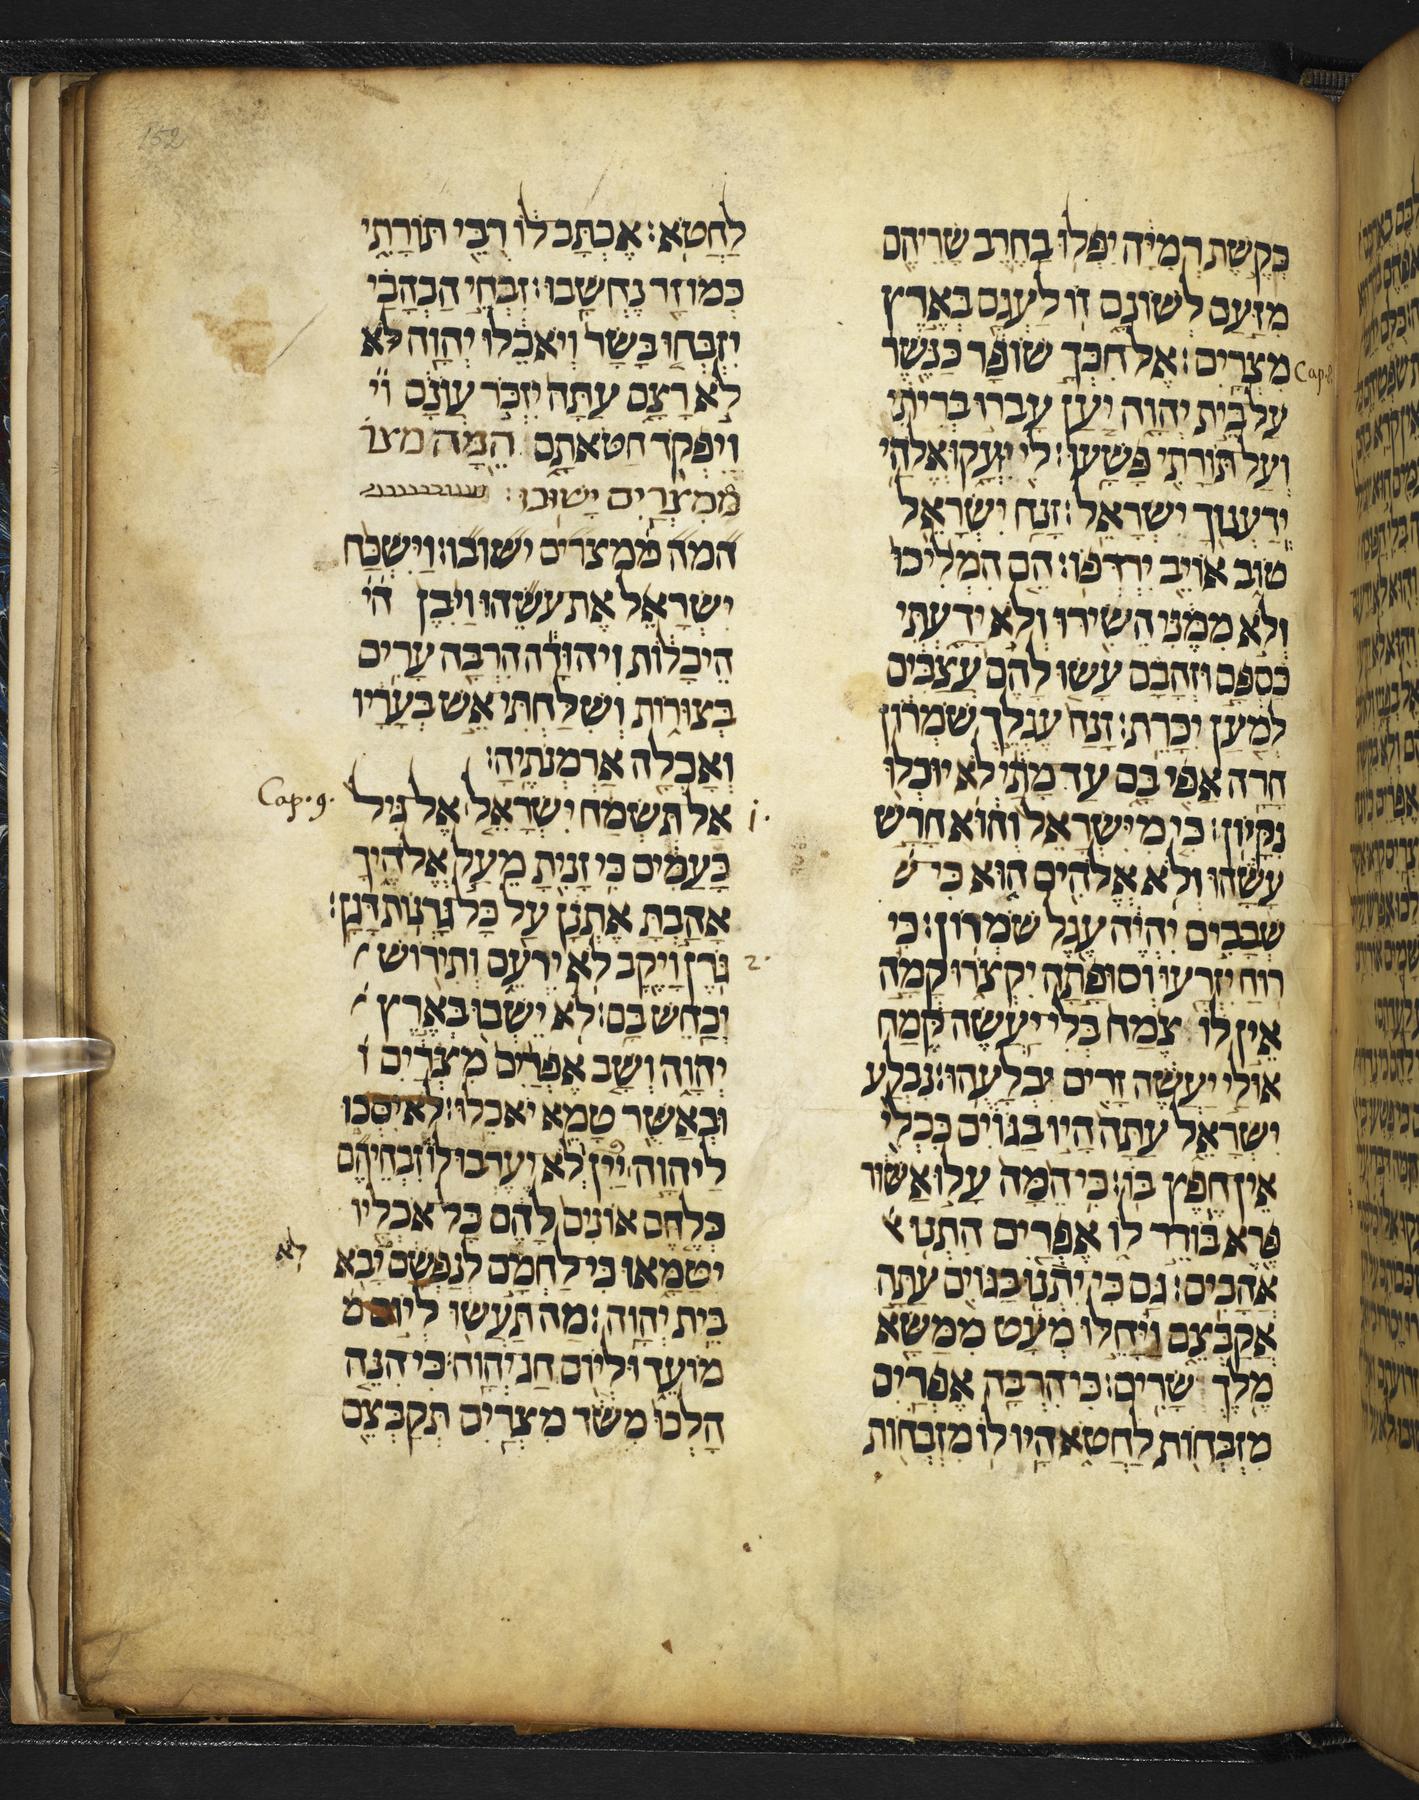 152
כְּקֶשֶׁת רְמִיָּה יִפְּלוּ בַחֶרֶב שָׂרֵיהֶם
מִזַּעַם לְשׁוֹנָם זוֹ לַעְגָּם בְּאֶרֶץ
מִצְרָיִם׃ אֶל חִכְּךָ שׁוֹפָר כַּנֶּשֶׁר
Cap. 8.
עַל בֵּית יְהוָה יַעַן עָבְרוּ בְרִיתִי
וְעַל תּוֹרָתִי פָּשָׁעוּ׃ לִי יִזְעָקוּ אֱלֹהַי
יְדַעֲנוּךָ יִשְׂרָאֵל׃ זָנַח יִשְׂרָאֵל
טוֹב אוֹיֵב יִרְדְּפוֹ׃ הֵם הִמְלִיכוּ
וְלֹא מִמֶּנִּי הֵשִׂירוּ וְלֹא יָדָעְתִּי
כַּסְפָּם וּזְהָבָם עָשׂוּ לָהֶם עֲצַבִּים
לְמַעַן יִכָּרֵת׃ זָנַח עֶגְלֵךְ שֹׁמְרוֹן
חָרָה אַפִּי בָּם עַד מָתַי לֹא יוּכְלוּ
נִקָּיוֹן׃ כִּי מִיִּשְׂרָאֵל וְהוּא חָרָשׁ
עָשָׂהוּ וְלֹא אֱלֹהִים הוּא כִּי ש
שְׁבָבִים יִהְיֶה עֵגֶל שֹׁמְרוֹן׃ כִּי
רוּחַ יִזְרָעוּ וְסוּפָתָה יִקְצֹרוּ קָמָה
אֵין לוֹ צֶמַח בְּלִי יַעֲשֶׂה קֶּמַח
אוּלַי יַעֲשֶׂה זָרִים יִבְלָעֻהוּ׃ נִבְלַע
יִשְׂרָאֵל עַתָּה הָיוּ בַגּוֹיִם כִּכְלִי
אֵין חֵפֶץ בּוֹ׃ כִּי הֵמָּה עָלוּ אַשּׁוּר
פֶּרֶא בּוֹדֵד לוֹ אֶפְרַיִם הִתְנוּ א
אֲהָבִים׃ גַּם כִּי יִתְנוּ בַגּוֹיִם עַתָּה
אֲקַבְּצֵם וַיָּחֵלּוּ מְּעָט מִמַּשָּׂא
מֶלֶךְ שָׂרִים׃ כִּי הִרְבָּה אֶפְרַיִם
מִזְבְּחוֹת לַחֲטֹא הָיוּ לוֹ מִזְבְּחוֹת
לַחֲטֹא׃ אֶכְתָּב לוֹ רֻבֵּי תּוֹרָתִי
כְּמוֹ זָר נֶחְשָׁבוּ׃ זִבְחֵי הַבְהָבַי
יִזְבְּחוּ בָשָׂר וְיֹאכֵלוּ יְהוָה לֹא
לֹא רָצָם עַתָּה יִזְכֹּר עֲוֹנָם וי
וְיִפְקֹד חַטֹּאתָם הֵמָּה מצר
מִמִּצְרַיִם יָשׁוּבוּ׃
המה ממצרים ישובו׃ וַיִּשְׁכַּח
יִשְׂרָאֵל אֶת עֹשֵׂהוּ וַיִּבֶן הי
הֵיכָלוֹת וִיהוּדָה הִרְבָּה עָרִים
בְּצוּרוֹת וְשִׁלַּחְתִּי אֵשׁ בְּעָרָיו
וְאָכְלָה אַרְמְנֹתֶיהָ׃
1. אַל תִּשְׂמַח יִשְׂרָאֵל אֶל גִּיל
Cap. 9.
כָּעַמִּים כִּי זָנִיתָ מֵעַל אֱלֹהֶיךָ
אָהַבְתָּ אֶתְנָן עַל כָּל גָּרְנוֹת דָּגָן׃
2. גֹּרֶן וָיֶקֶב לֹא יִרְעֵם וְתִירוֹשׁ
יְכַחֶשׁ בָּם׃ לֹא יֵשְׁבוּ בְּאֶרֶץ
יְהוָה וְשָׁב אֶפְרַיִם מִצְרַיִם ו
וּבְאַשּׁוּר טָמֵא יֹאכֵלוּ׃ לֹא יִסְּכוּ
לַיהוָה יַיִן וְלֹא יֶעֶרְבוּ לוֹ זִבְחֵיהֶם
כְּלֶחֶם אוֹנִים לָהֶם כָּל אֹכְלָיו
יִטַּמָּאוּ כִּי לַחְמָם לְנַפְשָׁם יָבֹא
לא
בֵּית יְהוָה׃ מַה תַּעֲשׂוּ לְיוֹם מ
מוֹעֵד וּלְיוֹם חַג יְהוָה׃ כִּי הִנֵּה
הָלְכוּ מִשֹּׁד מִצְרַיִם תְּקַבְּצֵם